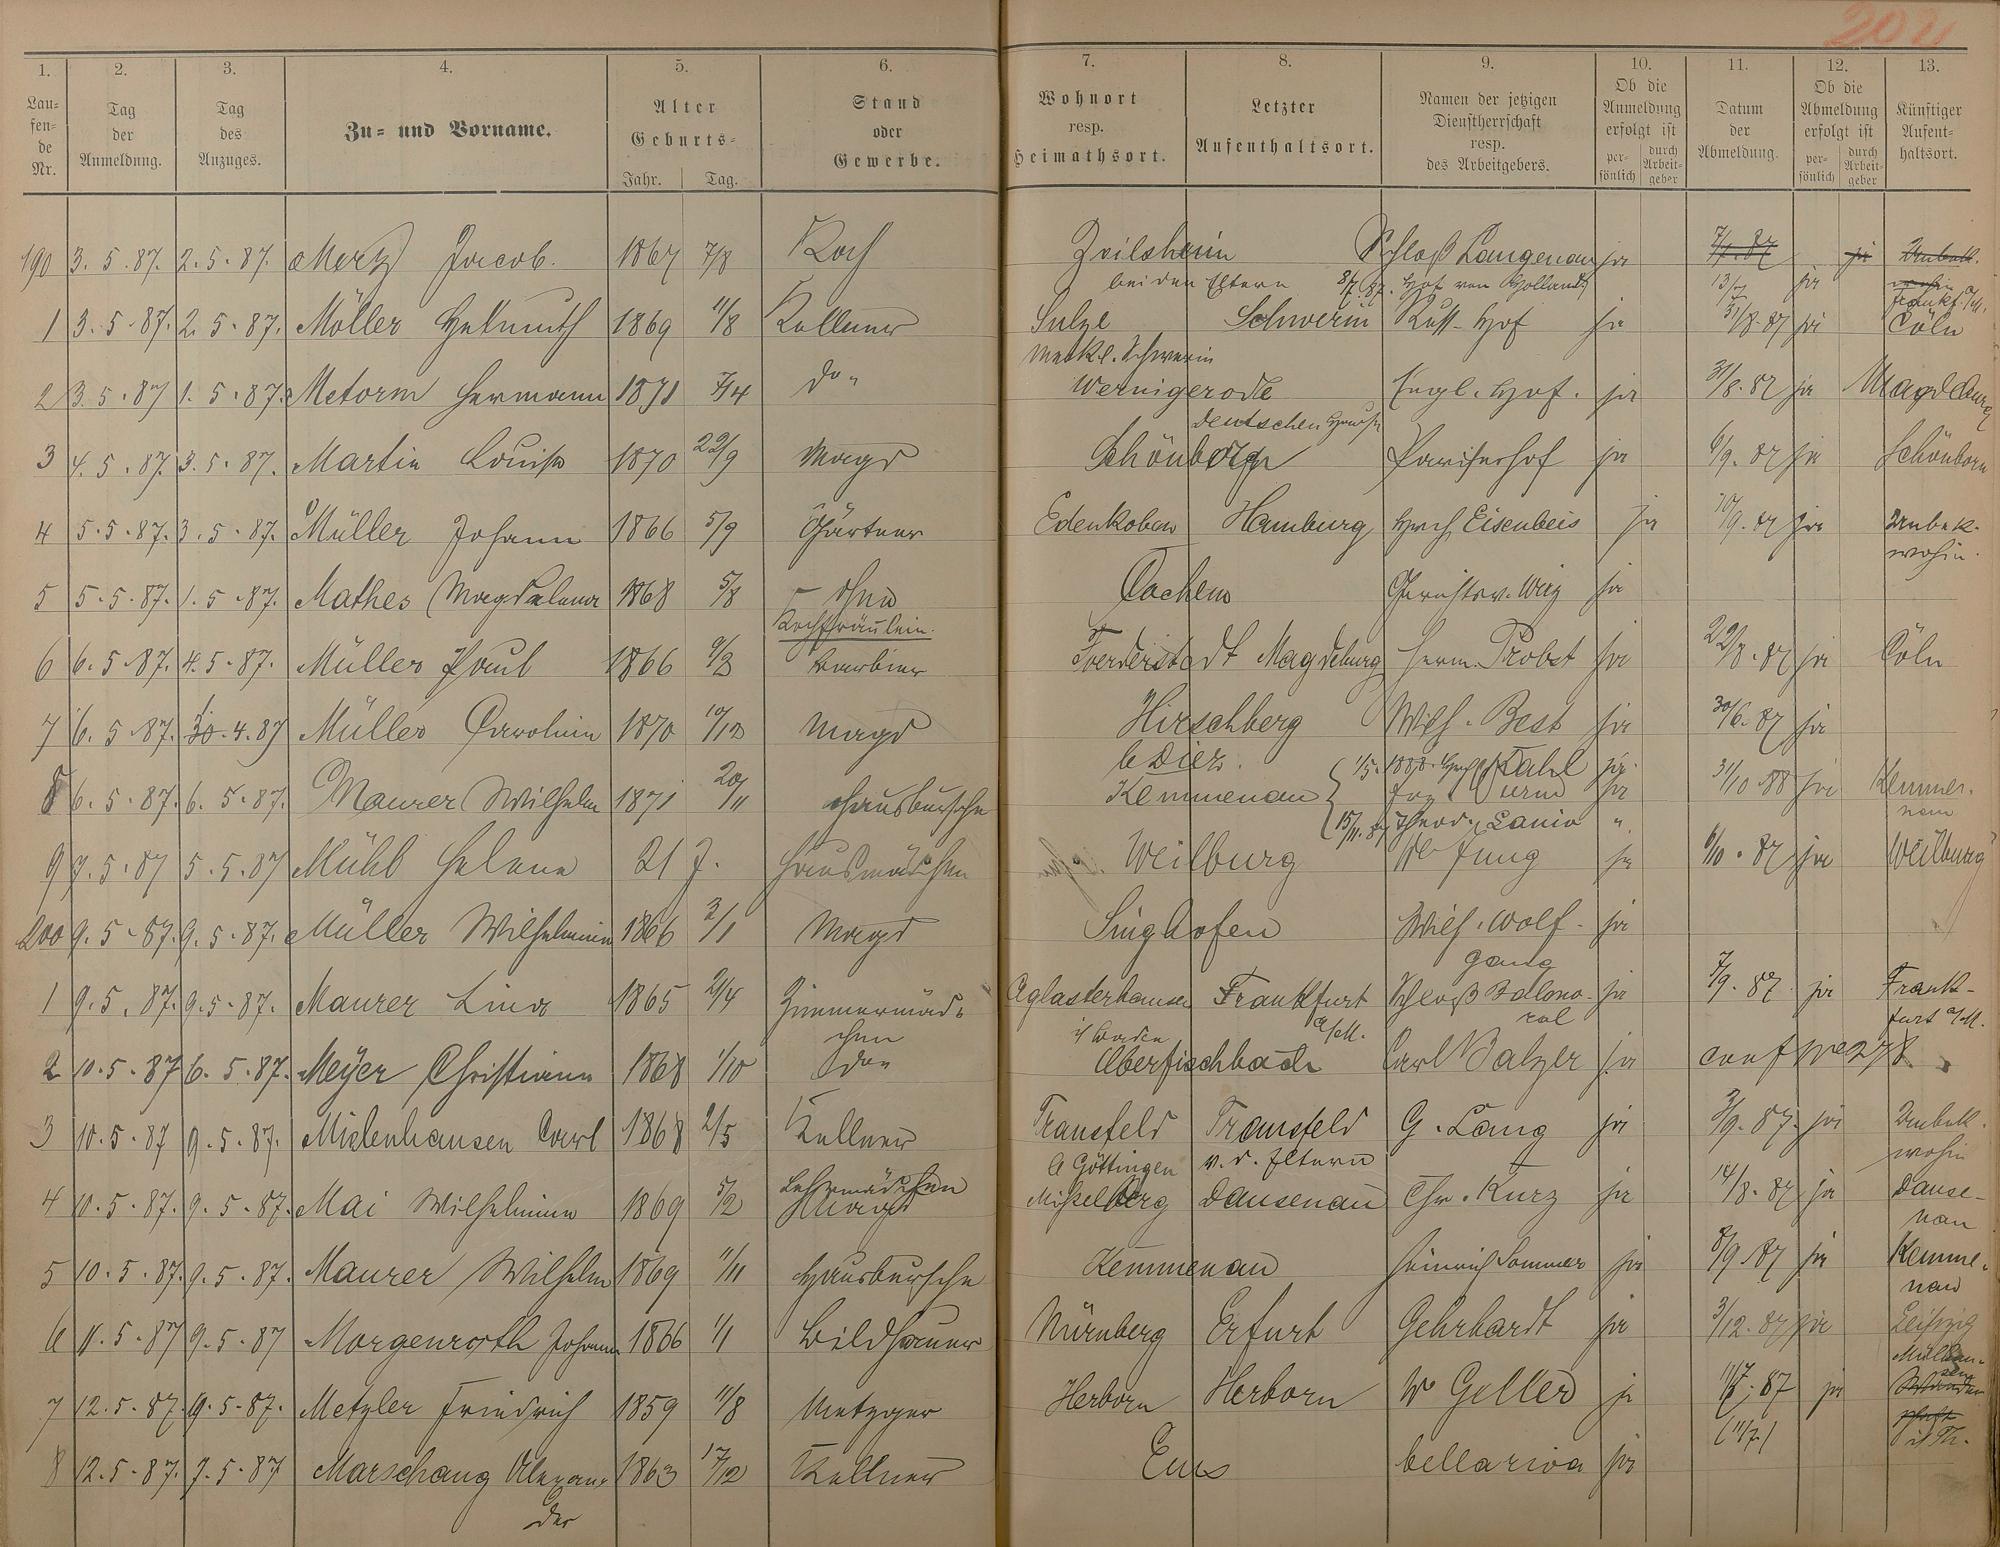 202
1. 2. 3. 4. 5. 6. 7. 8. 9. 10. 11. 12. 13.
Lau-
fen-
de
Nr.
Tag
der
Anmeldung.
Tag
des
Anzuges.
Zu- und Vorname.
Alter
Geburts-
Jahr. Tag.
Stand
oder
Gewerbe.
Wohnort
resp.
Heimathsort.
Letzter
Aufenthaltsort.
Namen der jetzigen
Dienstherrschaft
resp.
des Arbeitgebers.
Ob die
Anmeldung
erfolgt ist
per-
sönlich
durch
Arbeit-
geber
Datum
der
Abmeldung.
Ob die
Abmeldung
erfolgt ist
per-
sönlich
durch
Arbeit-
geber
Künftiger
Aufent-
haltsort.
190 3. 5. 87. 2. 5. 87. Mertz Jacob. 1867 7/8 Koch Zeilsheim Schloß Langenau ja 7/7. 87 ja Unbek.
bei den Eltern 8/7. 87. Hof von Holland 13/7 ja wohin
Frankf. a/M.
1 3. 5. 87. 2. 5. 87. Möller Helmuth 1869 11/8 Kellner Sulze Schwerin Russ. Hof ja 31/8. 87 ja Cöln
Meckl. Schwerin
2 3. 5. 87 1. 5. 87. Metorm Hermann 1871 7/4 do. Wernigerode Engl. Hof. ja 31/8. 87 ja Magdeburg
Deutschen Hause
3 4. 5. 87. 3. 5. 87. Martin Louise 1870 22/9 Magd Schönborn Pariserhof ja 6/9. 87 ja Schönborn
4 5. 5. 87. 3. 5. 87. Müller Johann 1866 5/9 Gärtner Edenkoben Hamburg Hrch. Eisenbeis ja 10/9. 87 ja Unbek.
wohin.
5 5. 5. 87. 1. 5. 87. Mathes Magdalena 1868 5/8 ohne Cochem Gerichtsv. ja
Kochfräulein.
6 6. 5. 87. 4. 5. 87. Müller Paul 1866 9/3 Barbier Foerderstedt Magdeburg Herm. Probst ja 22/8. 87 ja Cöln
7 6. 5. 87. 30. 4. 87 Müller Caroline 1870 10/12 Magd Hirschberg Wilh. Best ja 30/6. 87 ja
b Diez. 1/5. 1888. Hrch. Stahl ja
8 6. 5. 87. 6. 5. 87. Maurer Wilhelm 1871 20/11 Hausbursche Kemmenau ja 31/10 88 ja Kemme-
nau
15/11. 87 Theod. Lanio "
9 7. 5. 87 5. 5. 87 Mühl Helene 21 J. Hausmädchen Weilburg We Jung ja 6/10. 87 ja Weilburg
200 9. 5. 87. 9. 5. 87. Müller Wilhelmine 1866 3/1 Magd Singhofen Wilh. Wolf- ja
gang
1 9. 5. 87. 9. 5. 87. Maurer Lina 1865 21/4 Zimmermäd- Aglasterhausen Frankfurt Schloß Balmo- ja 7/9. 87 ja Frank-
chen i/ Baden a/M. ral furt a/M.
2 10. 5. 87 6. 5. 87. Meyer Christiane 1868 1/10 do Oberfischbach Carl Balzer ja conf No 278.
3 10. 5. 87 9. 5. 87. Mislenhausen Carl 1868 2/5 Kellner Transfeld Transfeld G. Lang ja 3/9. 87. ja Unbek.
b Göttingen v. d. Eltern wohin
Lehrmädchen
4 10. 5. 87. 9. 5. 87. Mai Wilhelmine 1869 5/2 Magd Misselberg Dausenau Chr. Kurz ja 14/8. 87 ja Dause-
nau
5 10. 5. 87. 9. 5. 87. Maurer Wilhelm 1869 11/11 Hausbursche Kemmenau Heinrich Sommer ja 8/9. 87 ja Kemme-
nau
6 11. 5. 87 9. 5. 87 Morgenroth Johann 1866 1/1 Bildhauer Nürnberg Erfurt Gehrhardt ja 3/12. 87 ja Leipzig
7 12. 5. 87. 9. 5. 87. Metzler Friedrich 1859 11/8 Metzger Herborn Herborn We Geller ja 11/7. 87 ja Mülhau-
sen
i/ Th.
(11/7.)
8 12. 5. 87. 7. 5. 87 Marschang Alexan- 1863 17/12 Kellner Ems bellariva ja
der